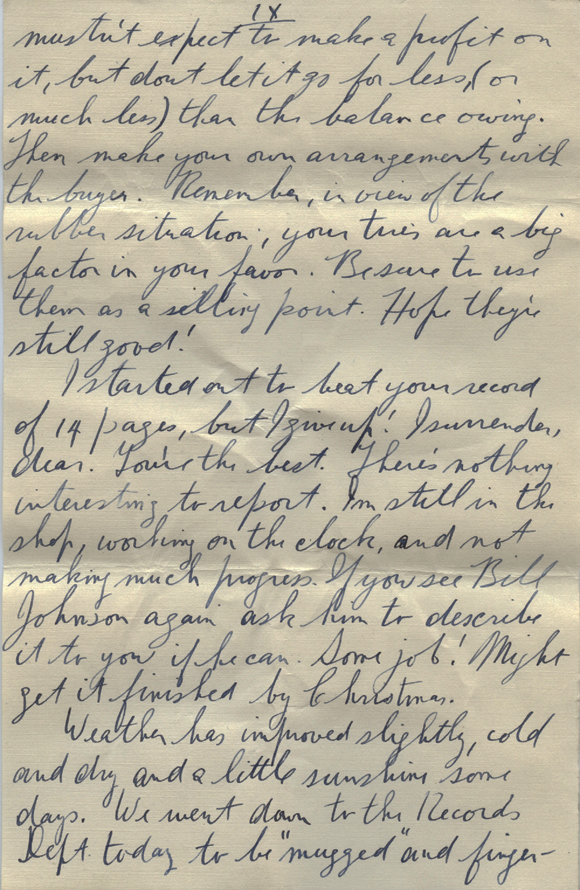 IX
mustn't expect to make a profit on
it, but dont let it go for less, (or
much less) than the balance owing.
Then make your own arrangements with
the buyer. Remember, in view of the
rubber situation, your tires are a big
factor in your favor. Be sure to use
them as a selling point. Hope they're
still good!
I started out to beat your record
of 14 pages, but I give up! I surrender,
dear. You're the best. There's nothing
interesting to report. I'm still in the
shop, working on the clock, and not
making much progress. If you see Bill
Johnson again ask him to describe
it to you if he can. Some job! Might
get it finished by Christmas.
Weather has improved slightly, cold
and dry and a little sunshine some
days. We went down to the Records
Dept. today to be "mugged" and finger-